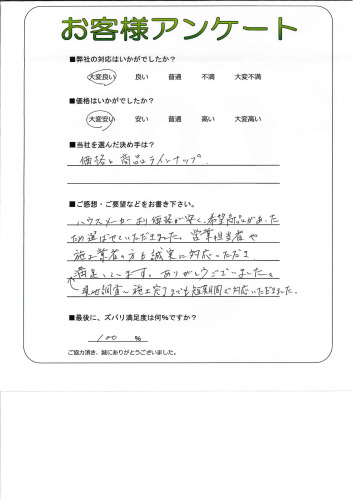 お客様アンケート
■弊社の対応はいかがでしたか？
大変良い 良い 普通 不満 大変不満
■価格はいかがでしたか？
大変安い 安い 普通 高い 大変高い
■当社を選んだ決め手は？
価格と商品ラインナップ。
■ご感想・ご要望などをお書き下さい。
ハウスメーカーより価格が安く、希望商品があった
ため選ばせていただきました。営業担当者や
施工業者の方も誠実に対応いただき
満足しています。ありがとうございました。
現地調査～施工完了までも短期間で対応いただきました。
■最後に、ズバリ満足度は何%ですか？
100 %
ご協力頂き、誠にありがとうございました。